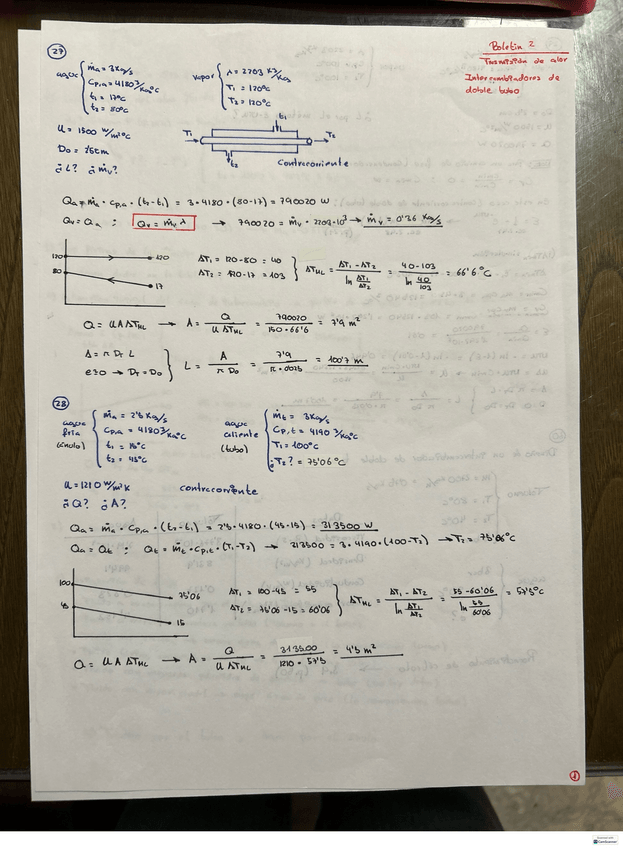 Boletín 2
Transmisión de calor
Intercambiadores de
doble tubo
27
agua
ṁa = 3 Kg/s
Cp,a = 4180 J/Kg°C
t1 = 17°C
t2 = 80°C
vapor
λ = 2203 KJ/Kg
T1 = 120°C
T2 = 120°C
U = 1500 W/m²°C
Do = 2'5cm
¿L? ¿ṁv?
t1
T1 → → T2
t2
Contracorriente
Qa = ṁa · Cp,a · (t2-t1) = 3·4180·(80-17) = 790020 W
Qv = Qa : Qv = ṁv λ → 790020 = ṁv · 2203·10³ → ṁv = 0'36 Kg/s
120 120
80
17
ΔT1 = 120-80 = 40
ΔT2 = 120-17 = 103
ΔTML = (ΔT1 - ΔT2) / (ln ΔT1/ΔT2) = (40-103) / (ln 40/103) = 66'6°C
Q = U A ΔTML → A = Q / (U ΔTML) = 790020 / (150·66'6) = 7'9 m²
A = π DT L
e≃0 → DT = Do
L = A / (π Do) = 7'9 / (π·0'025) = 100'7 m
28
agua
fría
(ánulo)
ṁa = 2'5 Kg/s
Cp,a = 4180 J/Kg°C
t1 = 15°C
t2 = 45°C
agua
caliente
(tubo)
ṁt = 3Kg/s
Cp,t = 4190 J/Kg°C
T1 = 100°C
¿T2? = 75'06°C
U = 1210 W/m²K contracorriente
¿Q? ¿A?
Qa = ṁa · Cp,a · (t2-t1) = 2'5·4180·(45-15) = 313500 W
Qa = Qt : Qt = ṁt · Cp,t · (T1-T2) → 313500 = 3·4190·(100-T2) → T2 = 75'06°C
100
75'06
45
15
ΔT1 = 100-45 = 55
ΔT2 = 75'06-15 = 60'06
ΔTML = (ΔT1 - ΔT2) / (ln ΔT1/ΔT2) = (55-60'06) / (ln 55/60'06) = 57'5°C
Q = U A ΔTML → A = Q / (U ΔTML) = 313500 / (1210·57'5) = 4'5 m²
1
CamScanner